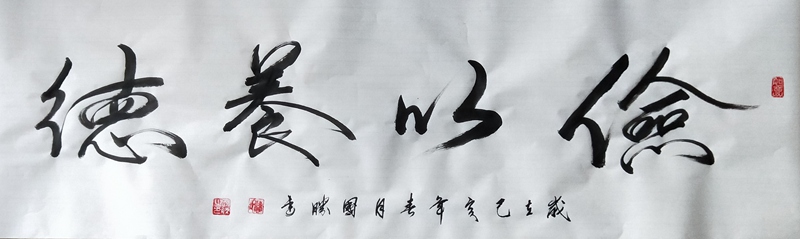 儉以養德
歲在己亥年春月國勝書